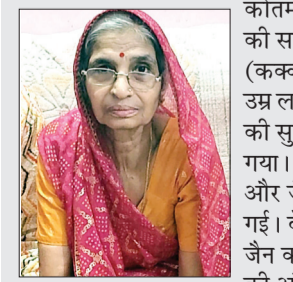 की स
(कक्व
उम्र ल
की सु
गया।
और ज
गई। वे
जैन व